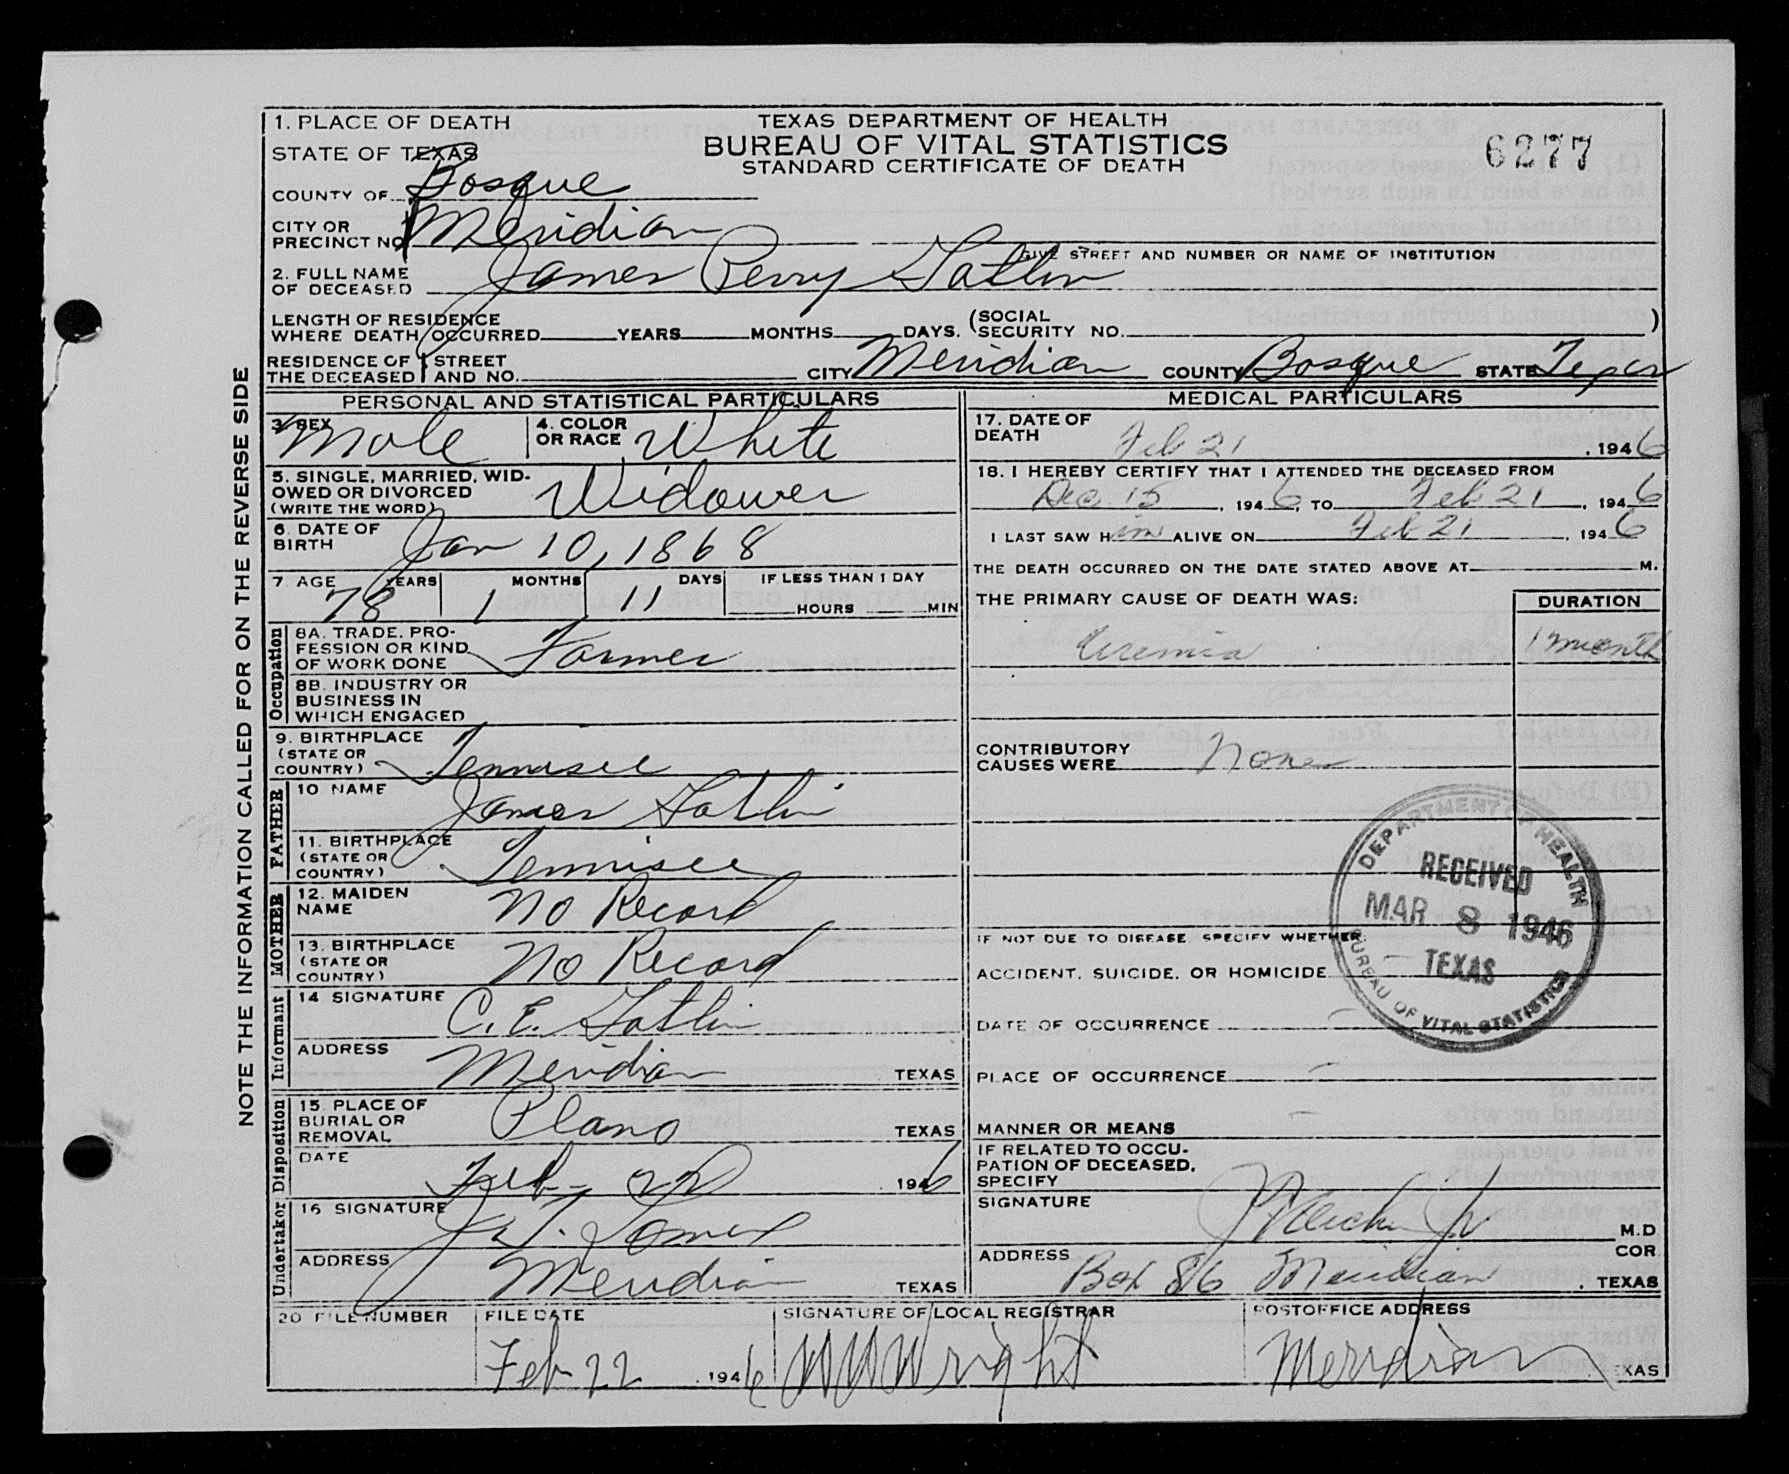 1. PLACE OF DEATH
TEXAS DEPARTMENT OF HEALTH
STATE OF TEXAS
BUREAU OF VITAL STATISTICS
6277
STANDARD CERTIFICATE OF DEATH
COUNTY OF Bosque
CITY OR
PRECINCT NO. Meridian
GIVE STREET AND NUMBER OR NAME OF INSTITUTION
2. FULL NAME
OF DECEASED James Perry Gatlin
LENGTH OF RESIDENCE
WHERE DEATH OCCURRED YEARS MONTHS DAYS. (SOCIAL SECURITY NO. )
RESIDENCE OF THE DECEASED } STREET AND NO. CITY Meridian COUNTY Bosque STATE Texas
NOTE THE INFORMATION CALLED FOR ON THE REVERSE SIDE
PERSONAL AND STATISTICAL PARTICULARS
3. SEX Male
4. COLOR OR RACE White
5. SINGLE, MARRIED, WID-
OWED OR DIVORCED
(WRITE THE WORD) Widower
6. DATE OF
BIRTH Jan 10, 1868
7. AGE YEARS MONTHS DAYS IF LESS THAN 1 DAY
78 1 11 HOURS MIN
Occupation
8A. TRADE, PRO-
FESSION OR KIND
OF WORK DONE Farmer
8B. INDUSTRY OR
BUSINESS IN
WHICH ENGAGED
9. BIRTHPLACE
(STATE OR
COUNTRY) Tennisee
FATHER
10 NAME James Gatlin
11. BIRTHPLACE
(STATE OR
COUNTRY) Tennisee
MOTHER
12. MAIDEN
NAME No Record
13. BIRTHPLACE
(STATE OR
COUNTRY) No Record
Informant
14 SIGNATURE C. E. Gatlin
ADDRESS Meridian TEXAS
Disposition
15. PLACE OF
BURIAL OR
REMOVAL Plano TEXAS
DATE Feb- 22 1946
Undertaker
16 SIGNATURE
ADDRESS Meridian TEXAS
MEDICAL PARTICULARS
17. DATE OF
DEATH Feb 21 , 1946
18. I HEREBY CERTIFY THAT I ATTENDED THE DECEASED FROM
Dec 15 , 1946, TO Feb 21 , 1946
I LAST SAW Him ALIVE ON Feb 21 , 1946
THE DEATH OCCURRED ON THE DATE STATED ABOVE AT M.
THE PRIMARY CAUSE OF DEATH WAS: DURATION
Uremia 1 month
CONTRIBUTORY
CAUSES WERE None
DEPARTMENT OF HEALTH
RECEIVED
MAR 8 1946
TEXAS
BUREAU OF VITAL STATISTICS
IF NOT DUE TO DISEASE, SPECIFY WHETHER
ACCIDENT, SUICIDE, OR HOMICIDE
DATE OF OCCURRENCE
PLACE OF OCCURRENCE
MANNER OR MEANS
IF RELATED TO OCCU-
PATION OF DECEASED,
SPECIFY
SIGNATURE M.D
COR
ADDRESS Box 86 Meridian , TEXAS
20 FILE NUMBER
FILE DATE
Feb 22 , 1946
SIGNATURE OF LOCAL REGISTRAR
Wright
POSTOFFICE ADDRESS
Meridian TEXAS